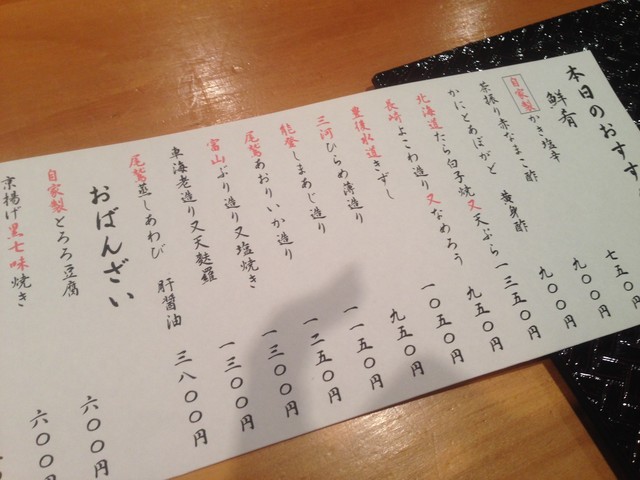 本日のおすす
鮮肴
自家製かき塩辛 七五〇円
茶振り赤なまこ酢 九〇〇円
かにとあぼがど 黄身酢 九〇〇円
北海道たら白子焼又天ぷら 一三五〇円
長崎よこわ造り又なめろう 九五〇円
豊後水道きずし 一〇五〇円
三河ひらめ薄造り 九五〇円
能登しまあじ造り 一一五〇円
尾鷲あおりいか造り 一二五〇円
富山ぶり造り又塩焼き 一三〇〇円
車海老造り又天麩羅 一三〇〇円
尾鷲蒸しあわび 肝醤油 三八〇〇円
おばんざい
自家製とろろ豆腐 六〇〇円
京揚げ黒七味焼き 六〇〇円